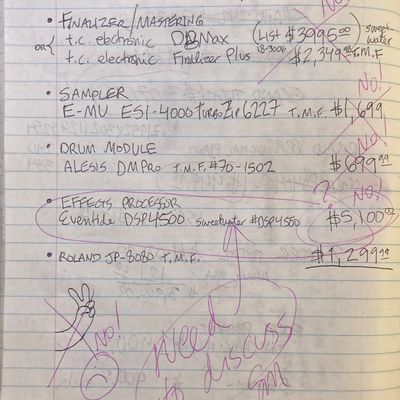 • FINALIZER/MASTERING No!
OR{ t.c. electronic DBMax (List $3995.00) sweetwater
t.c. electronic Finalizer Plus 18-3006 $2,349.99 T.M.F
No!
• SAMPLER
E-MU ESI-4000 TURBO Zip 6227 T.M.F. $1,699
No!
• DRUM MODULE
ALESIS DMPro T.M.F. #70-1502 $699.99
? No!
• EFFECTS PROCESSOR
Eventide DSP4500 sweetwater #DSP4500 $5,100.00
• ROLAND JP-8080 T.M.F. $1,299.99
No!
need
to discuss